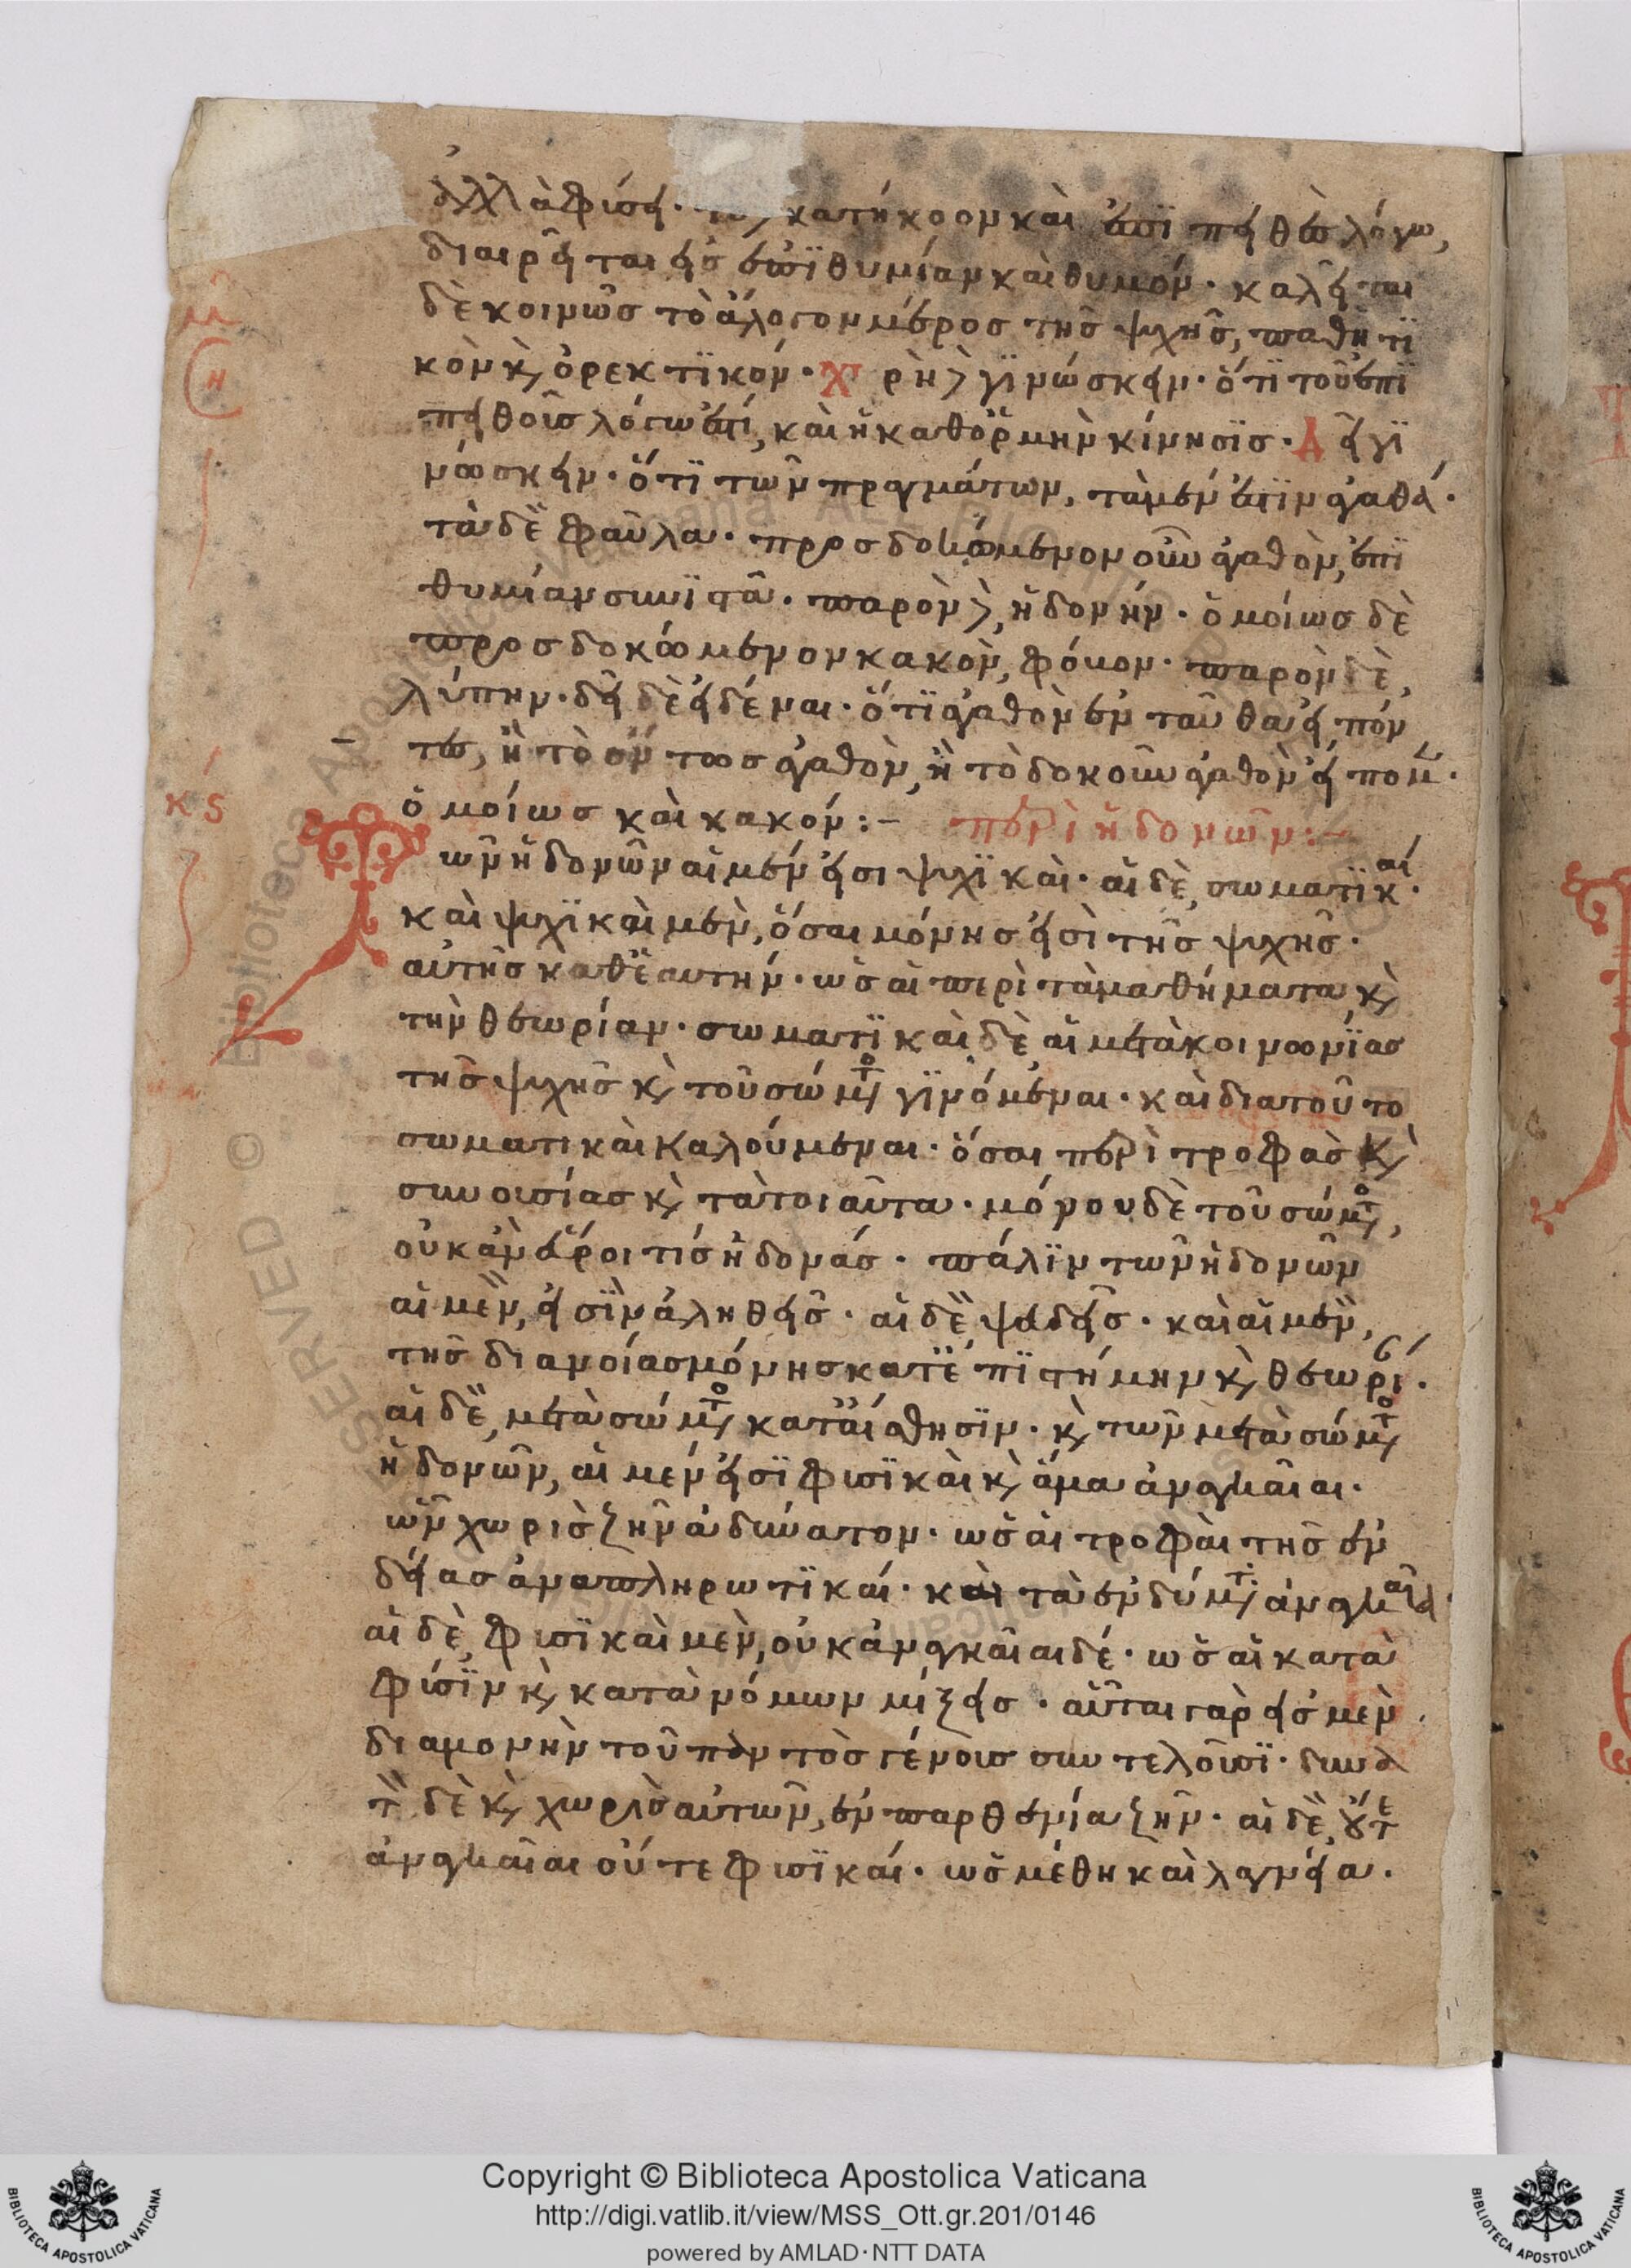 ἀλλὰ φύσει. τὸ δὲ κατήκοον καὶ ἐπϊ πειθὲς λόγω,
διαιρεῖται εἰς ἐπϊθυμίαν καὶ θυμόν. καλεῖται
δὲ κοινῶς τὸ ἄλογον μέρος τῆς ψυχῆς, παθητϊ
κὸν κ(αὶ) ὀρεκτϊκόν. Χρὴ δὲ γϊνώσκειν. ὅτϊ τοῦ ἐπϊ
πειθοῦς λόγω ἐστί, καὶ ἡ καθ' ὁρμὴν κίνησϊς. Δεῖ γϊ
νώσκειν. ὅτϊ τῶν πραγμάτων, τὰ μέν ἐστϊν ἀγαθά.
τὰ δὲ φαῦλα. προσδοκώμενον οὖν ἀγαθὸν, ἐπϊ
θυμίαν συνϊστᾶ. παρὸν δὲ, ἡδονήν. ὁμοίως δὲ
προσδοκώμενον κακὸν, φόβον. παρὸν δὲ,
λύπην. δεῖ δὲ εἰδέναι. ὅτϊ ἀγαθὸν ἐνταῦθα εἰπόν
τες, ἢ τὸ ὄντως ἀγαθὸν, ἢ τὸ δοκοῦν ἀγαθὸν εἴπομ(εν).
ὁμοίως καὶ κακόν:–
περὶ ἡδονῶν:–
Τῶν ἡδονῶν αἱ μέν εἰσι ψυχϊκαὶ. αἱ δὲ, σωματϊκαί.
καὶ ψυχϊκαὶ μὲν, ὅσαι μόνης εἰσὶ τῆς ψυχῆς.
αὐτῆς καθ' ἑαυτήν. ὡς αἱ περὶ τὰ μαθήματα κ(αὶ)
τὴν θεωρίαν. σωματϊκαὶ δὲ αἱ μετὰ κοινωνίας
τῆς ψυχῆς κ(αὶ) τοῦ σώματο(ς) γϊνόμεναι. καὶ διατοῦτο
σωματικαὶ καλούμεναι. ὅσαι περὶ τροφὰς κ(αὶ)
συνουσίας κ(αὶ) τὰ τοιαῦτα. μόνου δὲ τοῦ σώματο(ς),
οὐκ ἂν εὕροι τίς ἡδονάς. πάλϊν τῶν ἡδονῶν
αἱ μὲν, εἰσϊν ἀληθεῖς. αἱ δὲ ψευδεῖς. καὶ αἱ μὲν,
τῆς διανοίας μόνης κατ' ἐπϊστήμην κ(αὶ) θεωρί(αν).
αἱ δὲ, μετὰ σώματο(ς) κατ' αἴσθησϊν. κ(αὶ) τῶν μετὰ σώματο(ς)
ἡδονῶν, αἱ μέν εἰσϊ φυσϊκαὶ κ(αὶ) ἅμα ἀναγκαῖαι.
ὧν χωρὶς ζῆν ἀδύνατον. ὡς αἱ τροφαὶ τῆς ἐν
δείας ἀναπληρωτϊκαί. καὶ τὰ ἐνδύματ(α) ἀναγκαῖα.
αἱ δὲ, φυσϊκαὶ μὲν, οὐκ ἀναγκαῖαι δέ. ὡς αἱ κατὰ
φύσϊν κ(αὶ) κατὰ νόμων μίξεις. αὗται γὰρ εἰς μὲν
διαμονὴν τοῦ παντὸς γένους συντελοῦσϊ. δυνα
τὸν δὲ κ(αὶ) χωρὶς αὐτῶν, ἐν παρθενία ζῆν. αἱ δὲ, οὔτε
ἀναγκαῖαι οὔτε φυσϊκαί. ὡς μέθη καὶ λαγνεία.
κς
Copyright © Biblioteca Apostolica Vaticana
http://digi.vatlib.it/view/MSS_Ott.gr.201/0146
powered by AMLAD·NTT DATA
BIBLIOTECA APOSTOLICA VATICANA
BIBLIOTECA APOSTOLICA VATICANA